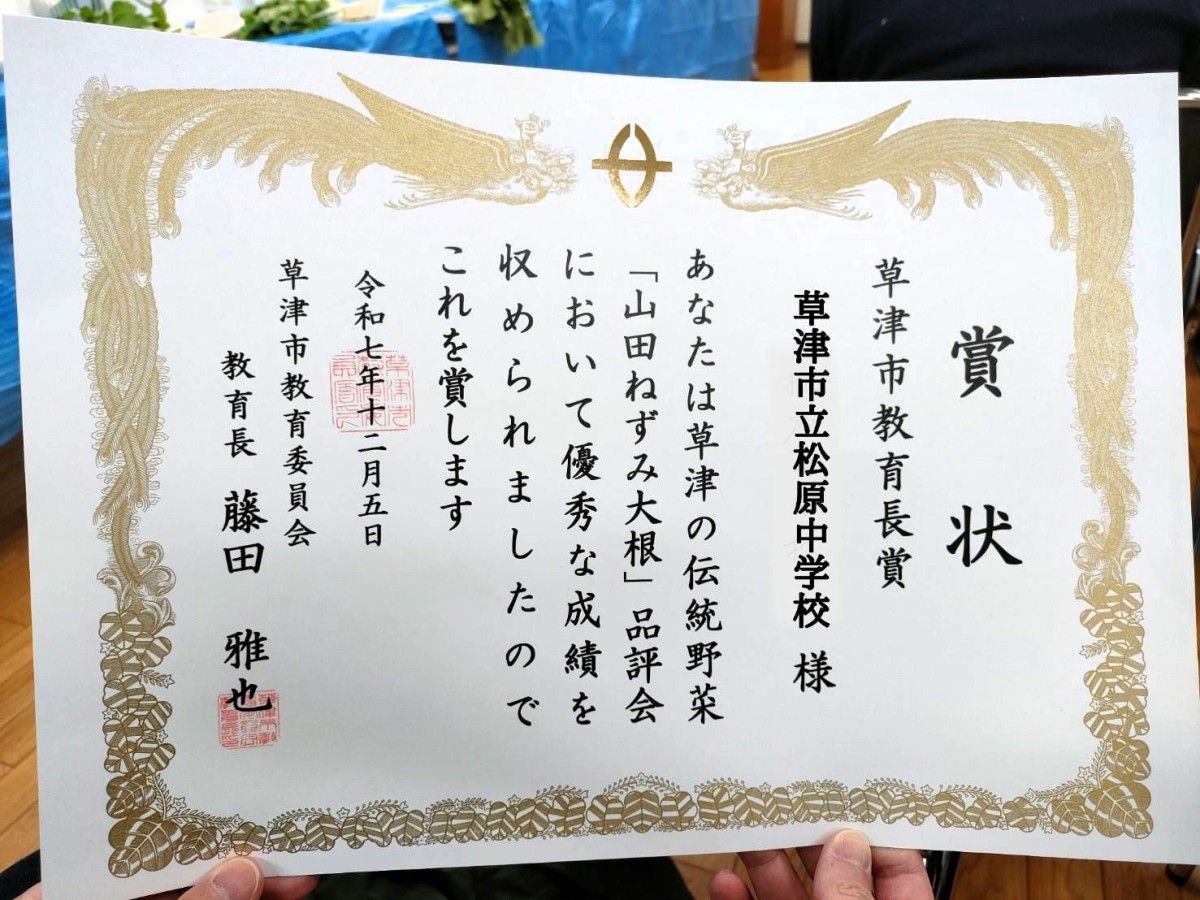 賞状
草津市教育長賞
草津市立松原中学校 様
あなたは草津の伝統野菜
「山田ねずみ大根」品評会
において優秀な成績を
収められましたので
これを賞します
令和七年十二月五日
草津市教育委員会
教育長 藤田 雅也